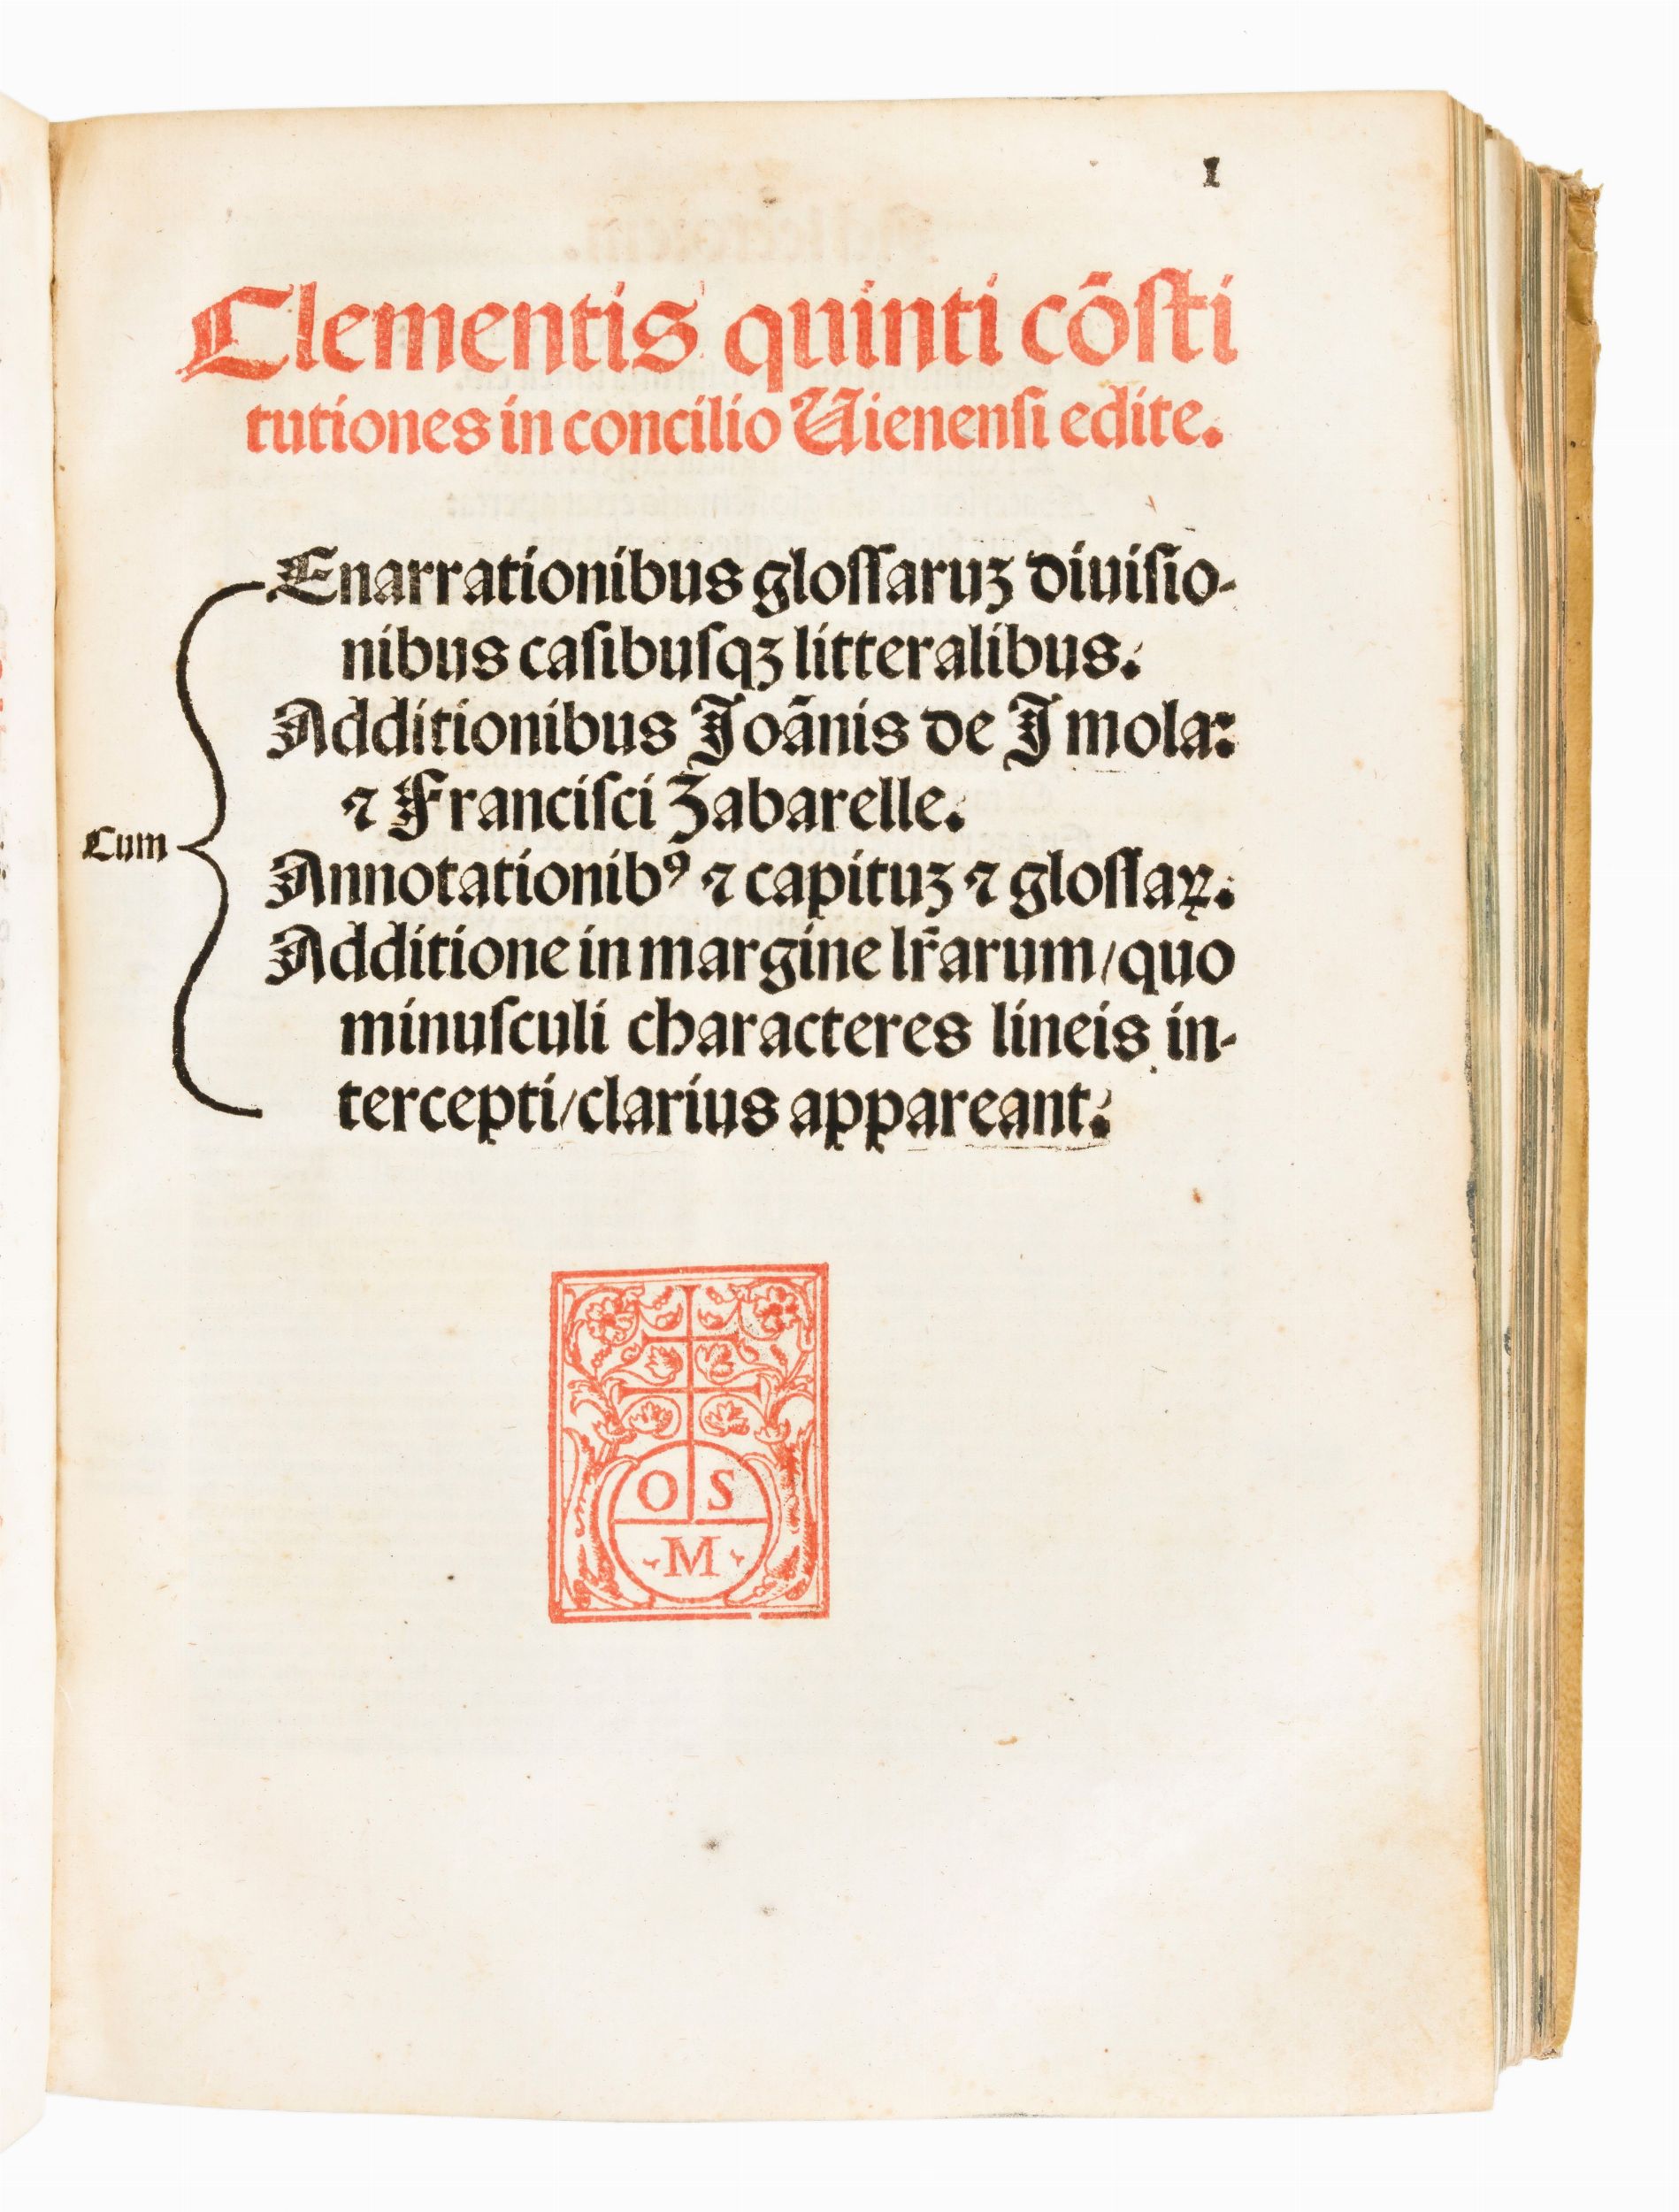 1
Clementis quinti cõſti
tutiones in concilio Uienenſi edite.
Enarrationibus gloſſaruꝫ diuiſio-
nibus caſibuſqꝫ litteralibus.
Additionibus Joãnis de Jmola:
⁊ Franciſci Zabarelle.
Cum
Annotationibꝰ ⁊ capituꝫ ⁊ gloſſaꝝ.
Additione in margine lr̃arum/quo
minuſculi characteres lineis in-
tercepti/clarius appareant.
O S
M